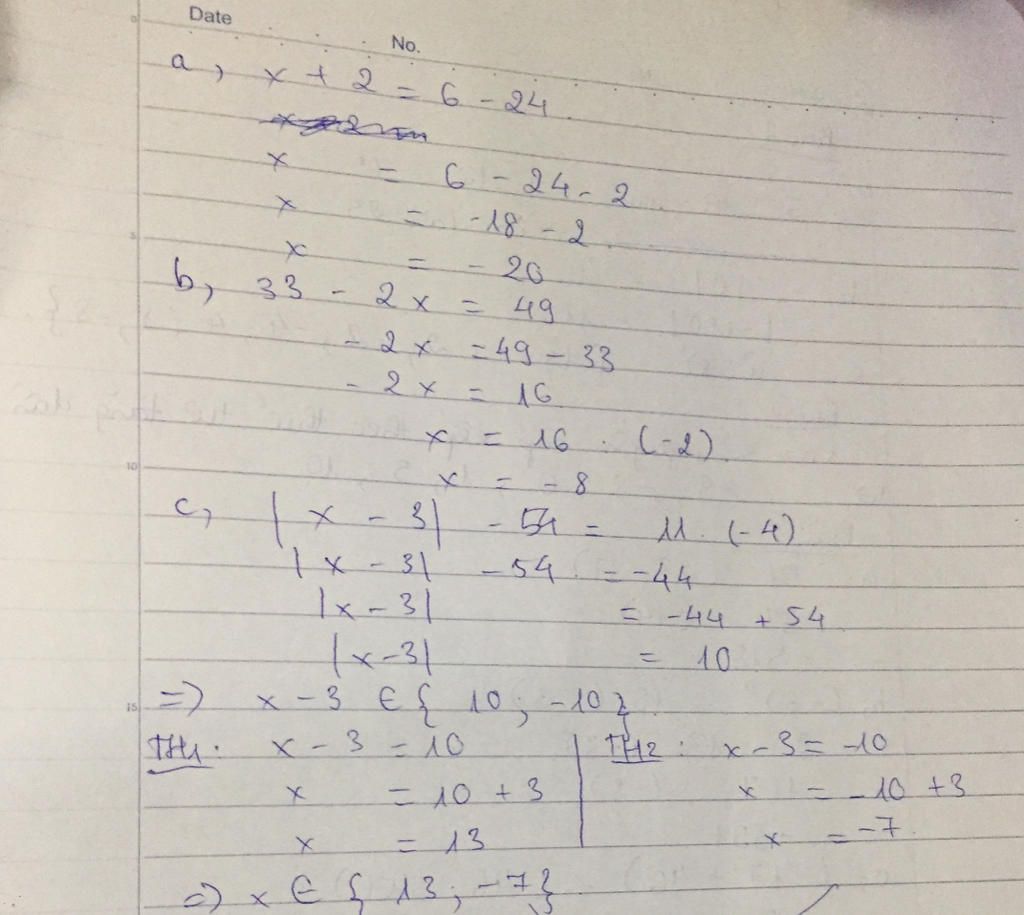 Date
No.
a, x + 2 = 6 - 24
x = 6 - 24 - 2
x = -18 - 2
x = - 20
b, 33 - 2x = 49
- 2x = 49 - 33
- 2x = 16
x = 16 : (-2)
x = - 8
c, |x - 3| - 54 = 11 . (-4)
|x - 3| - 54 = -44
|x - 3| = -44 + 54
|x - 3| = 10
=> x - 3 ∈ { 10 ; -10 }
TH1 : x - 3 = 10 | TH2 : x - 3 = -10
x = 10 + 3 | x = -10 + 3
x = 13 | x = -7
=> x ∈ { 13 ; -7 }
5
10
15